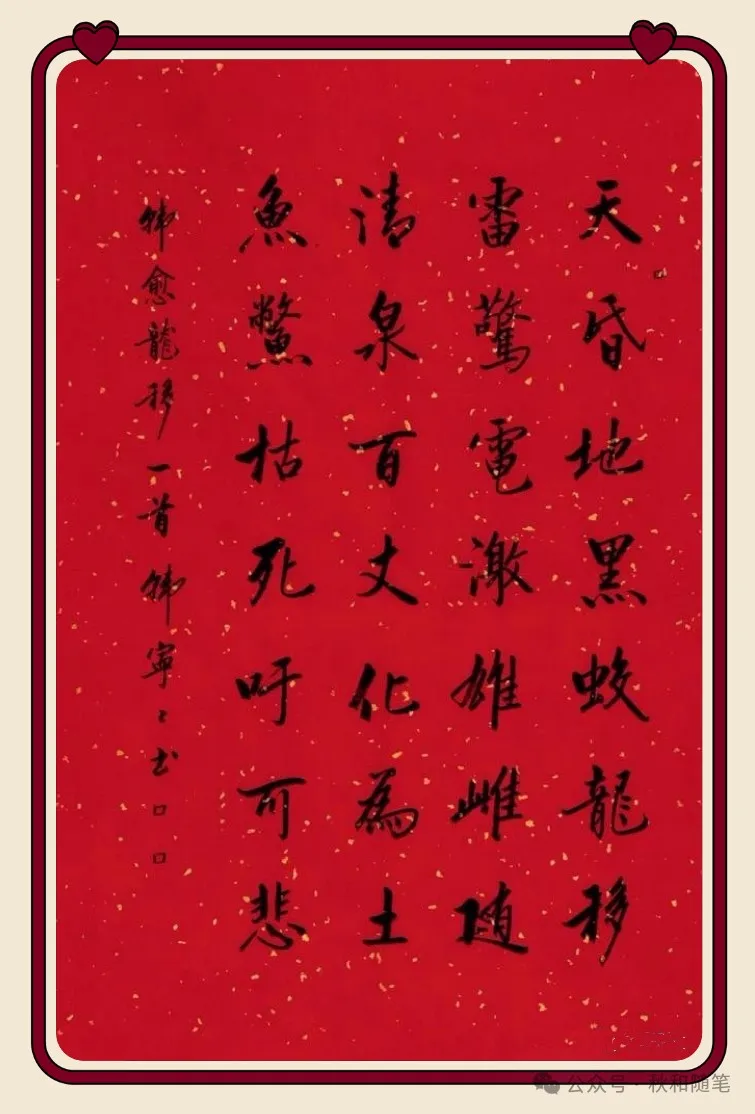 天昏地黑蛟龍移
雷驚電激雄雌随
清泉百丈化為土
魚鱉枯死吁可悲
韩愈龍移一首韩寧寧书
公众号·秋和随笔